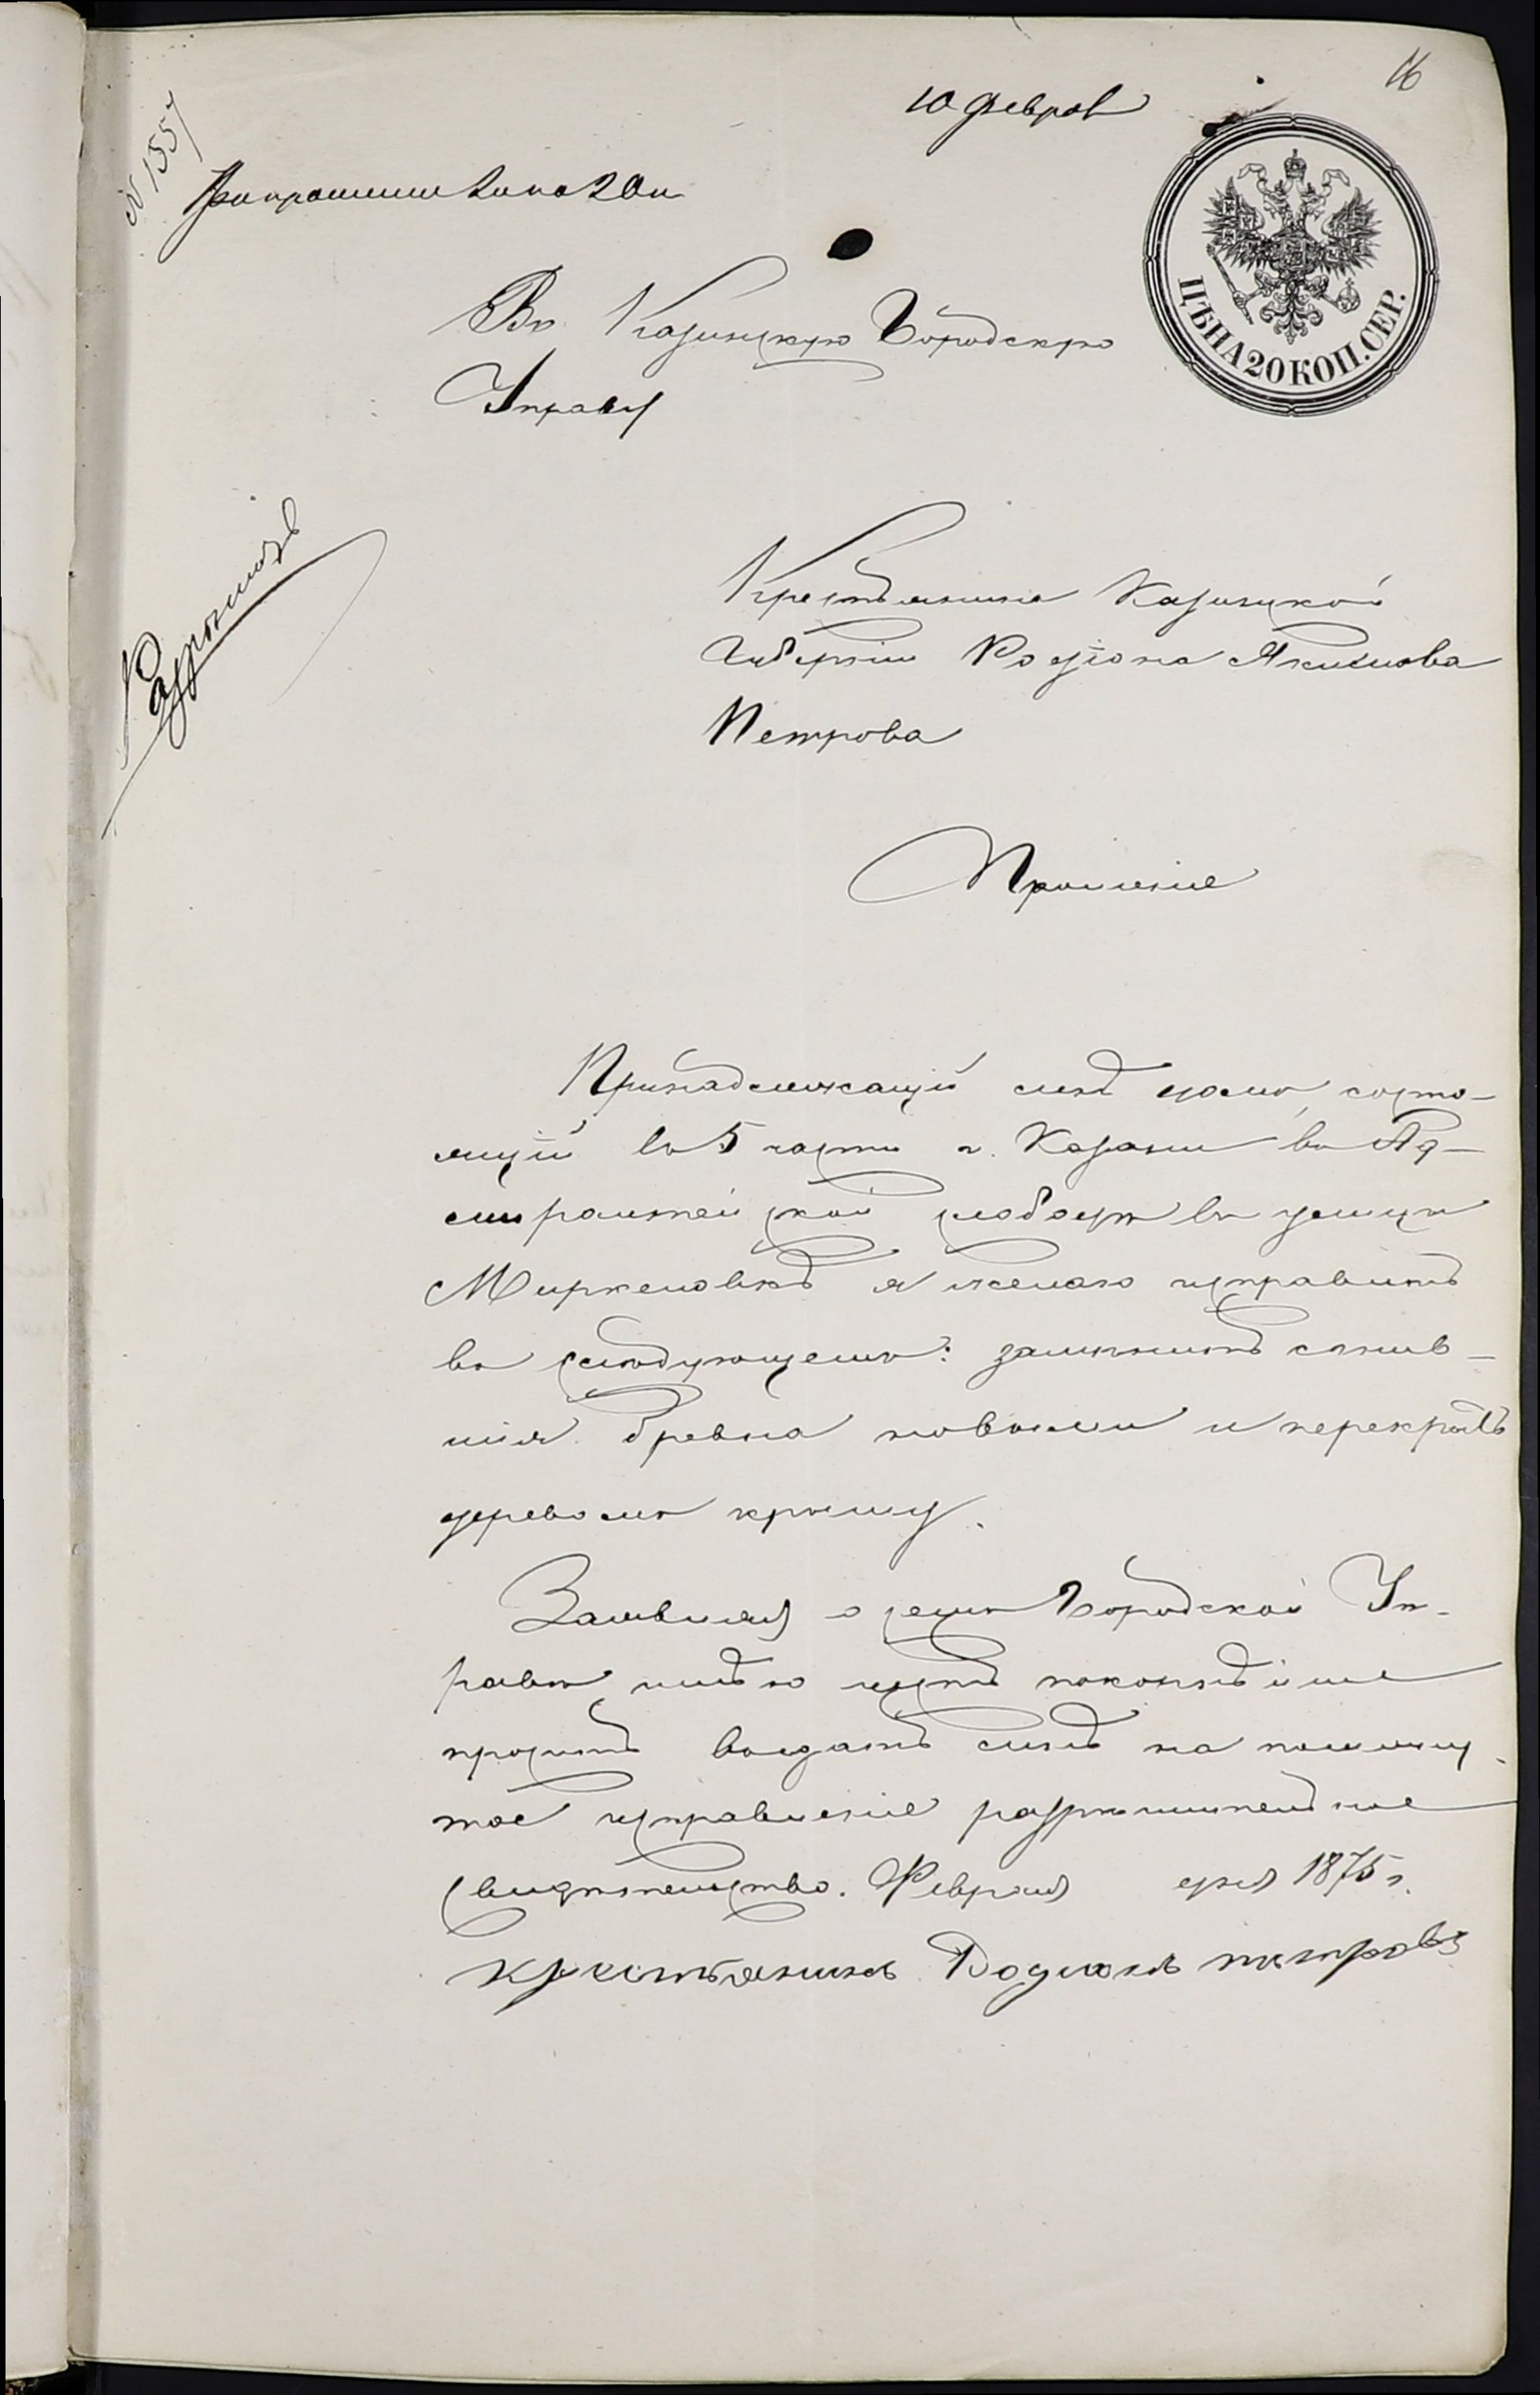 16
10 феврал
N 1557
При прошении 2 л по 20 к
ЦѢНА 20 КОП. СЕР.
Въ Казанскую Городскую
Управу
Разрѣшить
Крестьянина Казанской
Губерніи Родіона Якимова
Петрова
Прошеніе
Принадлежащій мнѣ домъ, состо-
ящій въ 5 части г. Казани въ Ад-
миралтейской слободѣ въ улицѣ
Мыркеловкѣ я желаю исправить
въ слѣдующемъ: замѣнить сгнив-
шія бревна новыми и перекрыть
деревомъ крышу.
Заявляя о семъ Городской Уп-
равѣ имѣю честь покорнѣйше
просить выдать мнѣ на помяну-
тое исправленіе разрѣшительное
свидѣтельство. Февраля дня 1875 г.
крестьянинъ Родионъ петровъ